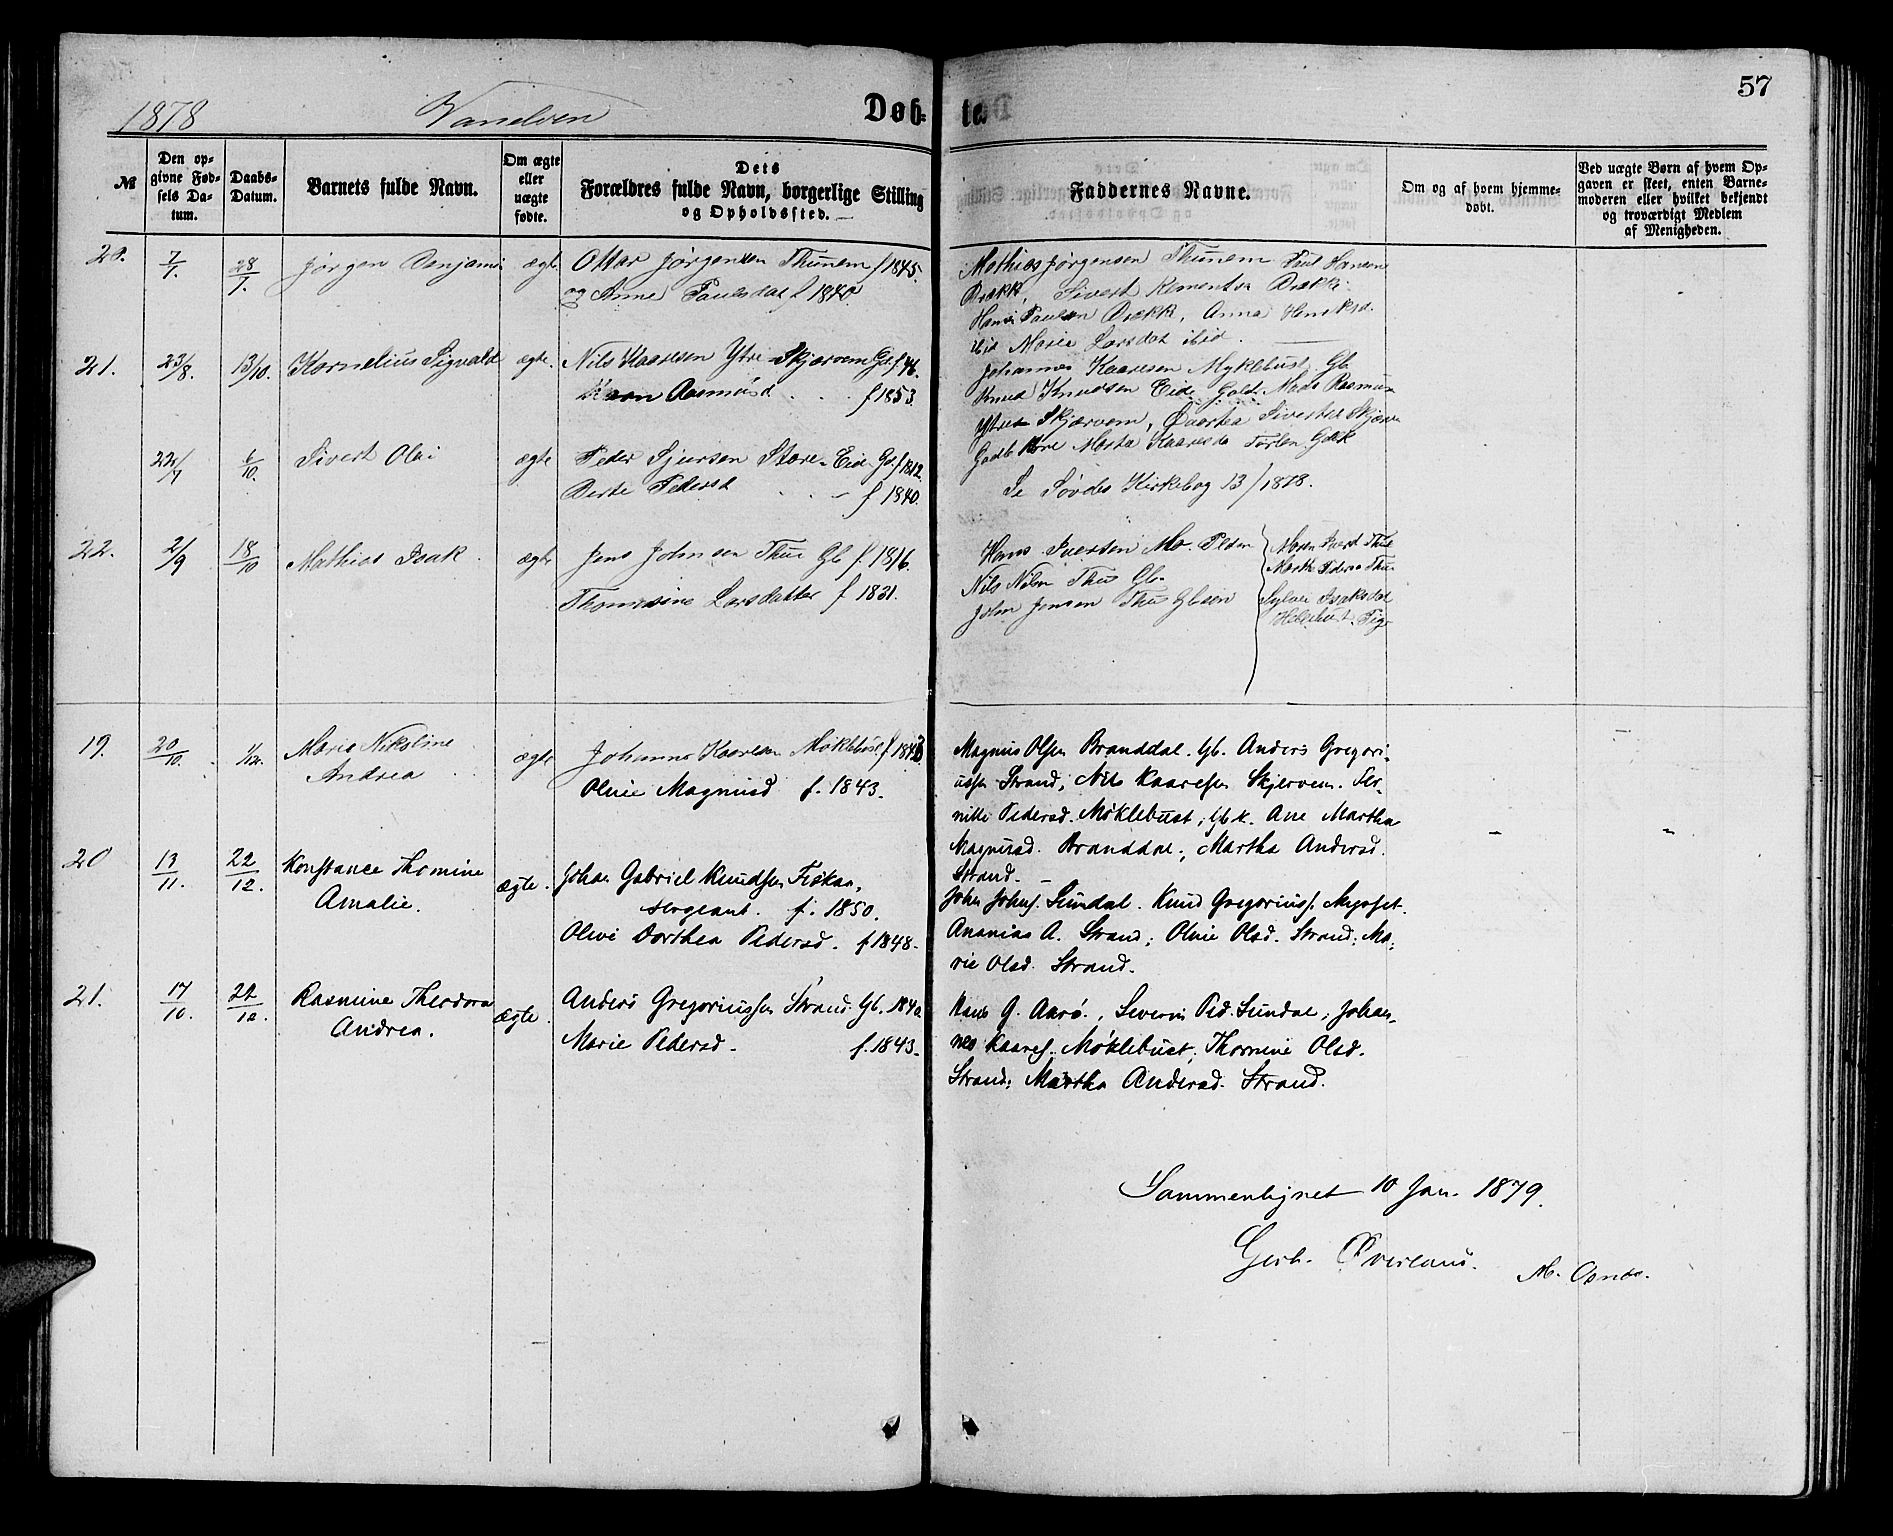 57
1878
Vanelven
Døb-
te.
№
Den op-
givne Fød-
sels Da-
tum.
Daabs-
Datum.
Barnets fulde Navn.
Om ægte
eller
uægte
fødte.
Dets
Forældres fulde Navn, borgerlige Stilling
og Opholdssted.
Faddernes Navne.
Om og af hvem hjemme-
døbt.
Ved uægte Børn af hvem Op-
gaven er skeet, enten Barne-
moderen eller hvilket bekjendt
og troværdigt Medlem
af Menigheden.
20. 7/1. 28/1. Jørgen Benjamin ægte
Ottar Jørgensen Thunem f 1845.
og Anne Paulsdat f 1840
Mathias Jørgensen Thunem Paul Hansen
Brekk, Sivert Klementsn Brekk.
Hans Paulsen Brekk, Anna
ibid Marie Larsdat ibid.
21. 23/8. 13/10. Kornelius Sigvald ægte.
Nils Kaaresen Ytre-Skjærvem Gb f 46.
Rasmusd f 1853.
Johannes Kaaresen Myklebust, Gb
Knud Knudsen Eide Mads Rasmus
Ytre Skjærvem, Sivertsd Skjærv
Marta Kaaresd
22/7 6/10. Sivert Olai ægte
Peder Sjursen Store-Eid Gb f 1812.
Berte Pedersd f 1840.
Se Søvdes Kirkebog 13/1878.
22. 2/9 18/10 Mathias Isak ægte
Jens Johnsen Thue Gb f. 1816.
Thomasine Larsdatter f 1831.
Hans Iversen Mo.
Nils Nilsn Thue Gb.
John Jensen Thue Gbsøn
Thue
Marthe Pedersd Thue
Sylvei Isaksdat
19. 20/10. 1/12. Marie Nikoline ægte
Andrea
Johannes Kaaresen Møklebust f. 1843
Olivie Magnusd f. 1843.
Magnus Olsen Branddal. Gb. Anders Gregori-
ussen Strand; Nils Kaaressen Skjerven. Per-
nille Pedersd. Møklebust, Gbk. Ane Martha
Magnusd. Branddal; Martha Andersd.
Strand.
20 13/11. 22/12. Konstance Thomine ægte.
Amalie.
Johan Gabriel Knudsen Fiskaa,
sergeant. f. 1850.
Olivi Dorthea Pedersd. f. 1848.
John Johns. Sundal. Knud Gregoriuss. Mysset.
Ananias A. Strand; Olivie Olsd. Strand; Ma-
rie Olsd. Strand.
21. 17/10. 22/12. Rasmine Theodora ægte.
Andrea.
Anders Gregoriussen Strand. Gb. 1840
Marie Pedersd. f. 1843.
Hans G. Aarø., Severin Ped. Sundal, Johan-
nes Kaares. Møklebust; Thomine Olsd.
Strand; Martha Andersd. Strand.
Sammenlignet 10 Jan. 1879.
Gerh. Øverland.
M. Osnes.